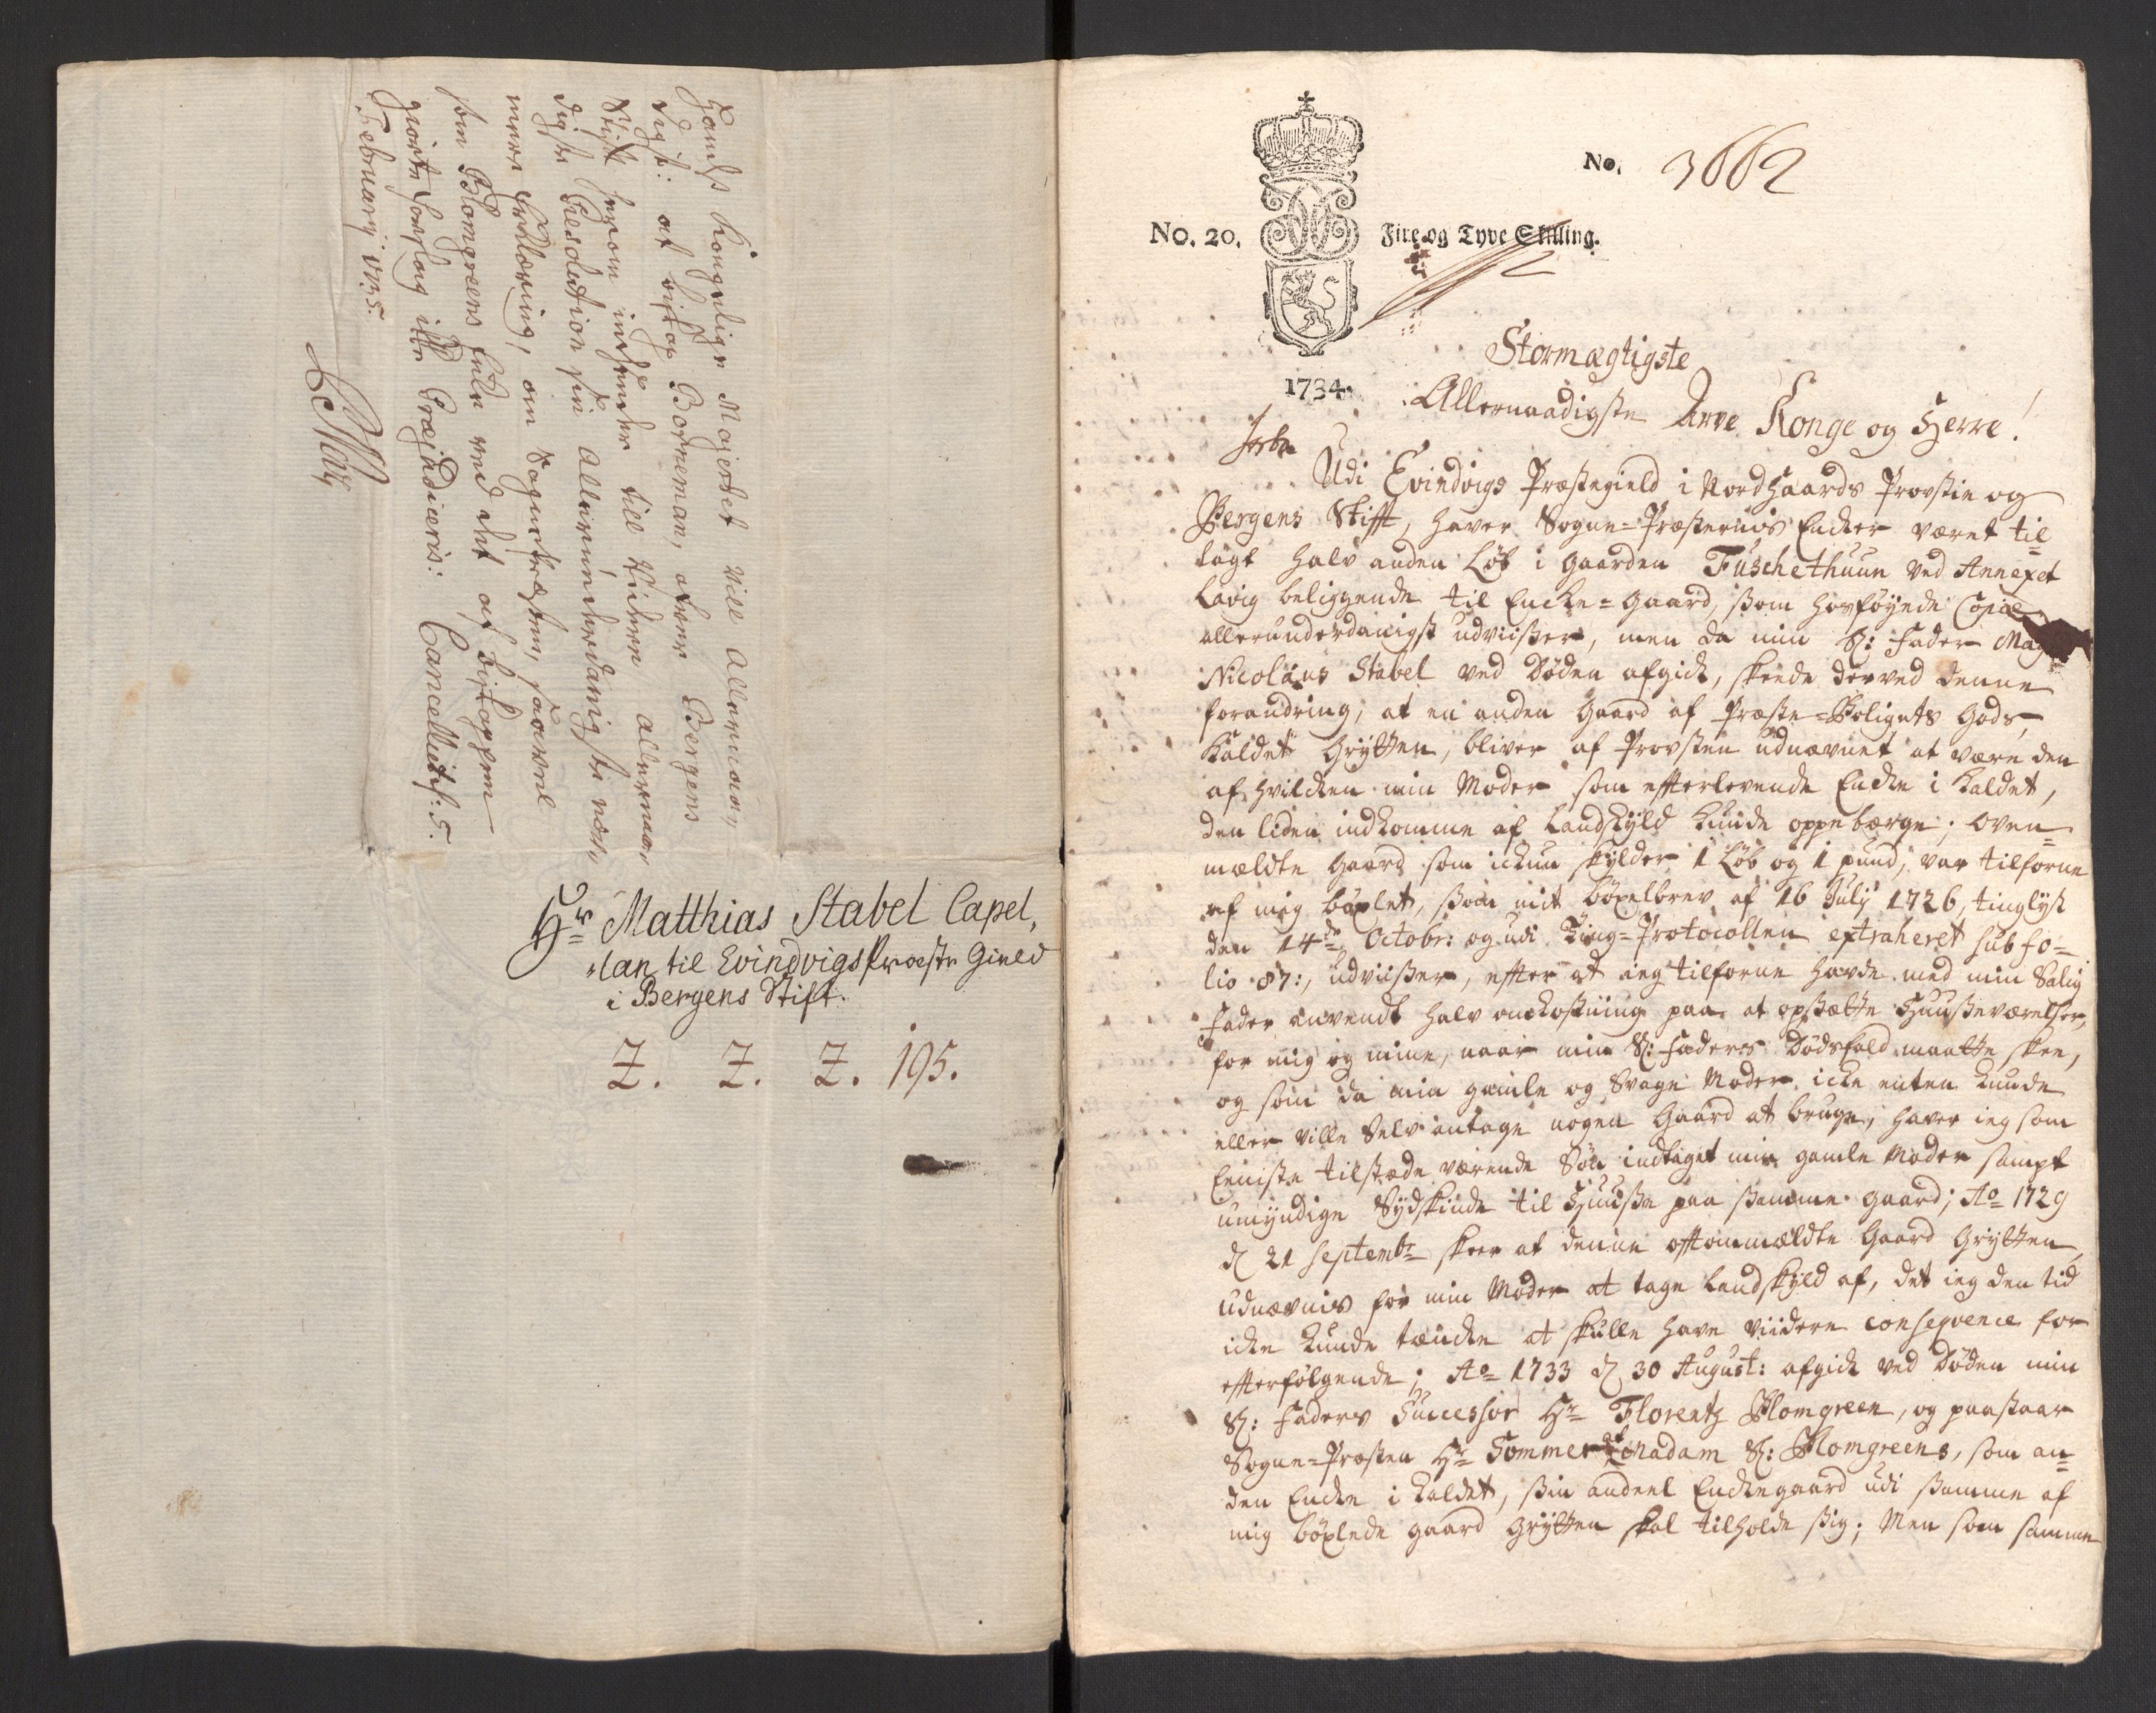 Hands Kongelige Majestet vill Allernaa¬
digst: at bishop Borneman, over Bergens
Stift herom indhenter till videre Allernaa¬
digste Resolution sin Allerunderdanigste nær¬
mere Erklæring, om Sognepræsten, saavel
som Blomgreens Enke ved det af bishoppen
giorte Forslag icke Præjudiceris: Cancelliet d: 5.
February 1735.
Hr Matthias Stabel Capel¬
lan til Evindvigs Præste Gield
i Bergens Stift.
Z. Z. Z. 195.
No. 3662
No. 20. Fire og Tyve Skilling.
1734.
Stormægtigste
Allernaadigste Arve Konge og Herre!
Udi Evindvigs Præstegield i Nordhaards Provstie og
Bergens Stifft, haver Sogne-Præsternis Encker været til
lagt halv anden Løb i gaarden Fuschethuun ved Annexet
Lavig beliggende til Encke-gaard, som hosføyede Copie
allerunderdanigst udviiser, men da min Sl: Fader Mag
Nicolaus Stabel ved Døden afgick, skeede derved denne
forandring, at en anden gaard af Præste-Boligets Gods,
kaldet Grytten, bliver af Provsten udnævnet at være den
af hvilcken min Moder som effterlevende Encke i Kaldet,
den liden indkomme af Landskyld kunde oppebærge; Oven¬
mældte gaard som ickun skylder 1 Løb og 1 pund, var tilforne
af mig böxlet, som mit böxelbrev af 16 July 1726, tinglyst
den 14de Octobr: og udi Ting-Protocollen extraheret sub fo¬
lio 87:, udviiser, effter at ieg tilforne havde med min Salig
Fader anvendt halv onckostning paa at opsætte Huuseværelser,
for mig og mine, naar min Sl: Faders Dødsfald maatte skee,
og som da min gamle og Svage Moder icke enten kunde
eller ville Selv antage nogen Gaard at bruge, haver ieg som
Eeniste tilstæde værende Søn indtaget min gamle Moder sampt
umyndige Sydskinde til Huuse paa samme gaard; Ao 1729
d 21 Septembr skeer at denne offtommældte Gaard Grytten,
udnævnis for min Moder at tage Landskyld af, det ieg den tid
icke kunde tæncke at skulle have viidere conseqvence for
effterfølgende; Ao 1733 d 30 August: afgick ved Døden min
Sl: Faders Successor Hr Florentz Blomgreen, og paastaar
Sogne-Præsten Hr Sommer at Madam Sl: Blomgreens, som an¬
den Encke i Kaldet, sin andeel Enckegaard udi samme af
mig böxlede gaard Grytten skal tilholde sig; Men som samme